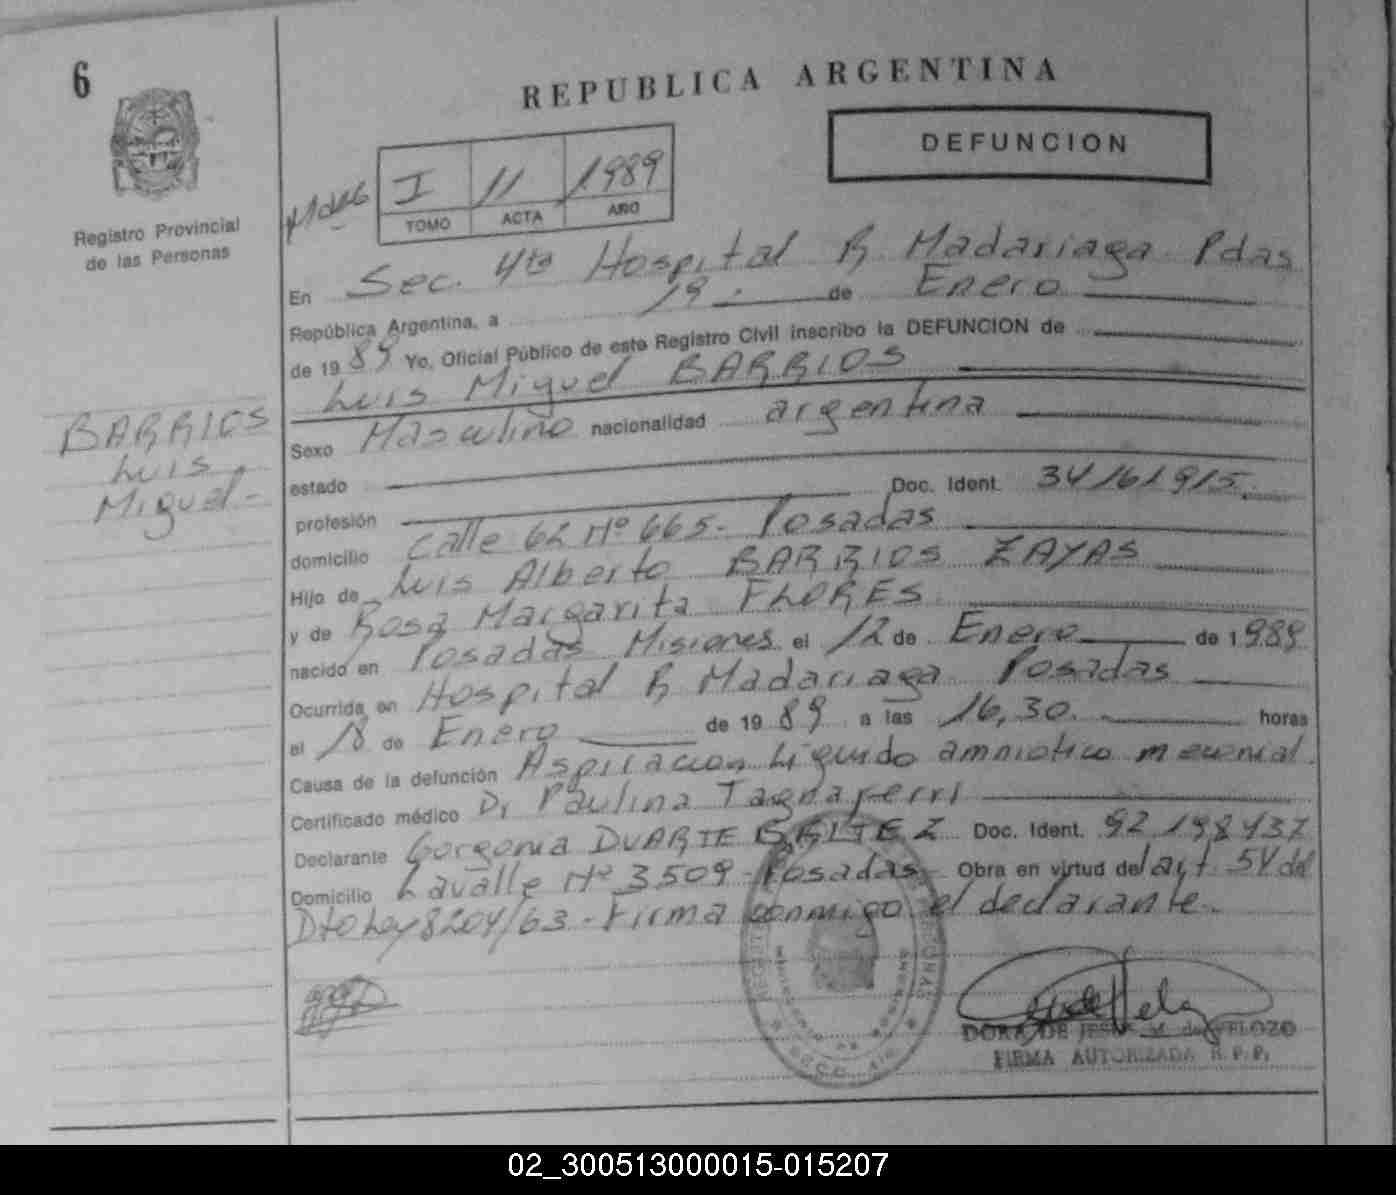 6
REPUBLICA ARGENTINA
DEFUNCION
I 11 1989
TOMO ACTA AÑO
Registro Provincial
de las Personas
En Sec. 4ta Hospital R. Madariaga Pdas
República Argentina, a 19 de Enero
de 1989 Yo, Oficial Público de este Registro Civil inscribo la DEFUNCION de
Luis Miguel BARRIOS
BARRIOS
Luis
Miguel-
Sexo Masculino nacionalidad argentina
estado
profesión Doc. Ident. 34161915.
domicilio calle 62 Nº 665- Posadas
Hijo de Luis Alberto BARRIOS ZAYAS
y de Rosa Margarita FLORES
nacido en Posadas Misiones el 12 de Enero de 1989
Ocurrida en Hospital R Madariaga Posadas
el 18 de Enero de 1989 a las 16,30. horas
Causa de la defunción Aspiracion Liquido amniotico meconial.
Certificado médico Dr Paulina Tagnaferri
Declarante Gorgonia DUARTE BRITEZ Doc. Ident. 92.198437
Domicilio Lavalle Nº 3509-Posadas- Obra en virtud del art. 54 del
Dto Ley 8204/63-Firma conmigo el declarante.
DORA DE JESUS M. de VELOZO
FIRMA AUTORIZADA R.P.P.
02_300513000015-015207